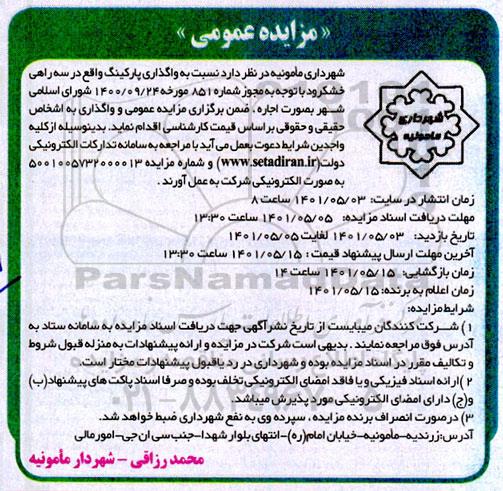 « مزایده عمومی »
شهرداری مأمونیه در نظر دارد نسبت به واگذاری پارکینگ واقع در سه راهی
خشکرود با توجه به مجوز شماره ۸۵۱ مورخه ۱۴۰۰/۰۹/۲۴ شورای اسلامی
شهر بصورت اجاره ، ضمن برگزاری مزایده عمومی و واگذاری به اشخاص
حقیقی و حقوقی بر اساس قیمت کارشناسی اقدام نماید. بدینوسیله از کلیه
واجدین شرایط دعوت بعمل می آید با مراجعه به سامانه تدارکات الکترونیکی
دولت (www.setadiran.ir) و شماره مزایده ۵۰۰۱۰۰۵۷۳۲۰۰۰۰۱۳
به صورت الکترونیکی شرکت به عمل آورند .
شهرداری
مامونیه
زمان انتشار در سایت: ۱۴۰۱/۰۵/۰۳ ساعت ۸
مهلت دریافت اسناد مزایده: ۱۴۰۱/۰۵/۰۵ ساعت ۱۳:۳۰
تاریخ بازدید: ۱۴۰۱/۰۵/۰۳ لغایت ۱۴۰۱/۰۵/۰۵
آخرین مهلت ارسال پیشنهاد قیمت : ۱۴۰۱/۰۵/۱۵ ساعت ۱۳:۳۰
زمان بازگشایی: ۱۴۰۱/۰۵/۱۵ ساعت ۱۴
زمان اعلام به برنده: ۱۴۰۱/۰۵/۱۵
شرایط مزایده:
۱) شرکت کنندگان میبایست از تاریخ نشر آگهی جهت دریافت اسناد مزایده به سامانه ستاد به
آدرس فوق مراجعه نمایند . بدیهی است شرکت در مزایده و ارائه پیشنهادات به منزله قبول شروط
و تکالیف مقرر در اسناد مزایده بوده و شهرداری در رد یا قبول پیشنهادات مختار است.
۲) ارائه اسناد فیزیکی و یا فاقد امضای الکترونیکی تخلف بوده و صرفا اسناد پاکت های پیشنهاد (ب)
و (ج) دارای امضای الکترونیکی مورد پذیرش میباشد.
۳) در صورت انصراف برنده مزایده ، سپرده وی به نفع شهرداری ضبط خواهد شد.
آدرس: زرندیه-مأمونیه-خیابان امام(ره)-انتهای بلوار شهدا-جنب سی ان جی-امور مالی
محمد رزاقی - شهردار مأمونیه